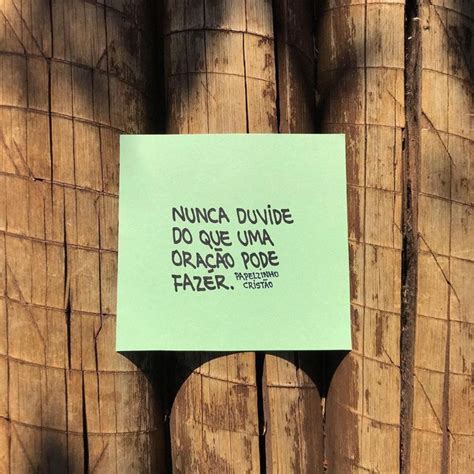 NUNCA DUVIDE
DO QUE UMA
ORAÇÃO PODE
FAZER.
PAPELZINHO
CRISTÃO